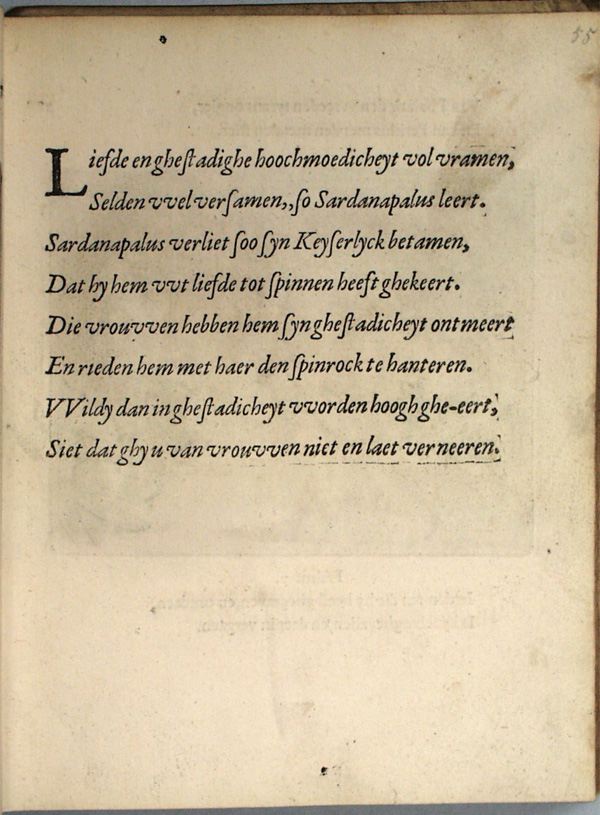 55
Liefde en gheſtadighe hoochmoedicheyt vol vramen,
Selden vvel verſamen,, ſo Sardanapalus leert.
Sardanapalus verliet ſoo ſyn Keyſerlyck betamen,
Dat hy hem vvt liefde tot ſpinnen heeft ghekeert.
Die vrouvven hebben hem ſyn gheſtadicheyt ontmeert
En rieden hem met haer den ſpinrock te hanteren.
VVildy dan in gheſtadicheyt vvorden hoogh ghe-eert,
Siet dat ghy u van vrouvven niet en laet verneeren.